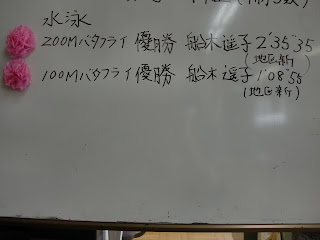 水泳
200Mバタフライ優勝 船木遥子 2'35"35
(地区新)
100Mバタフライ優勝 船木遥子 1'08"55
(地区新)